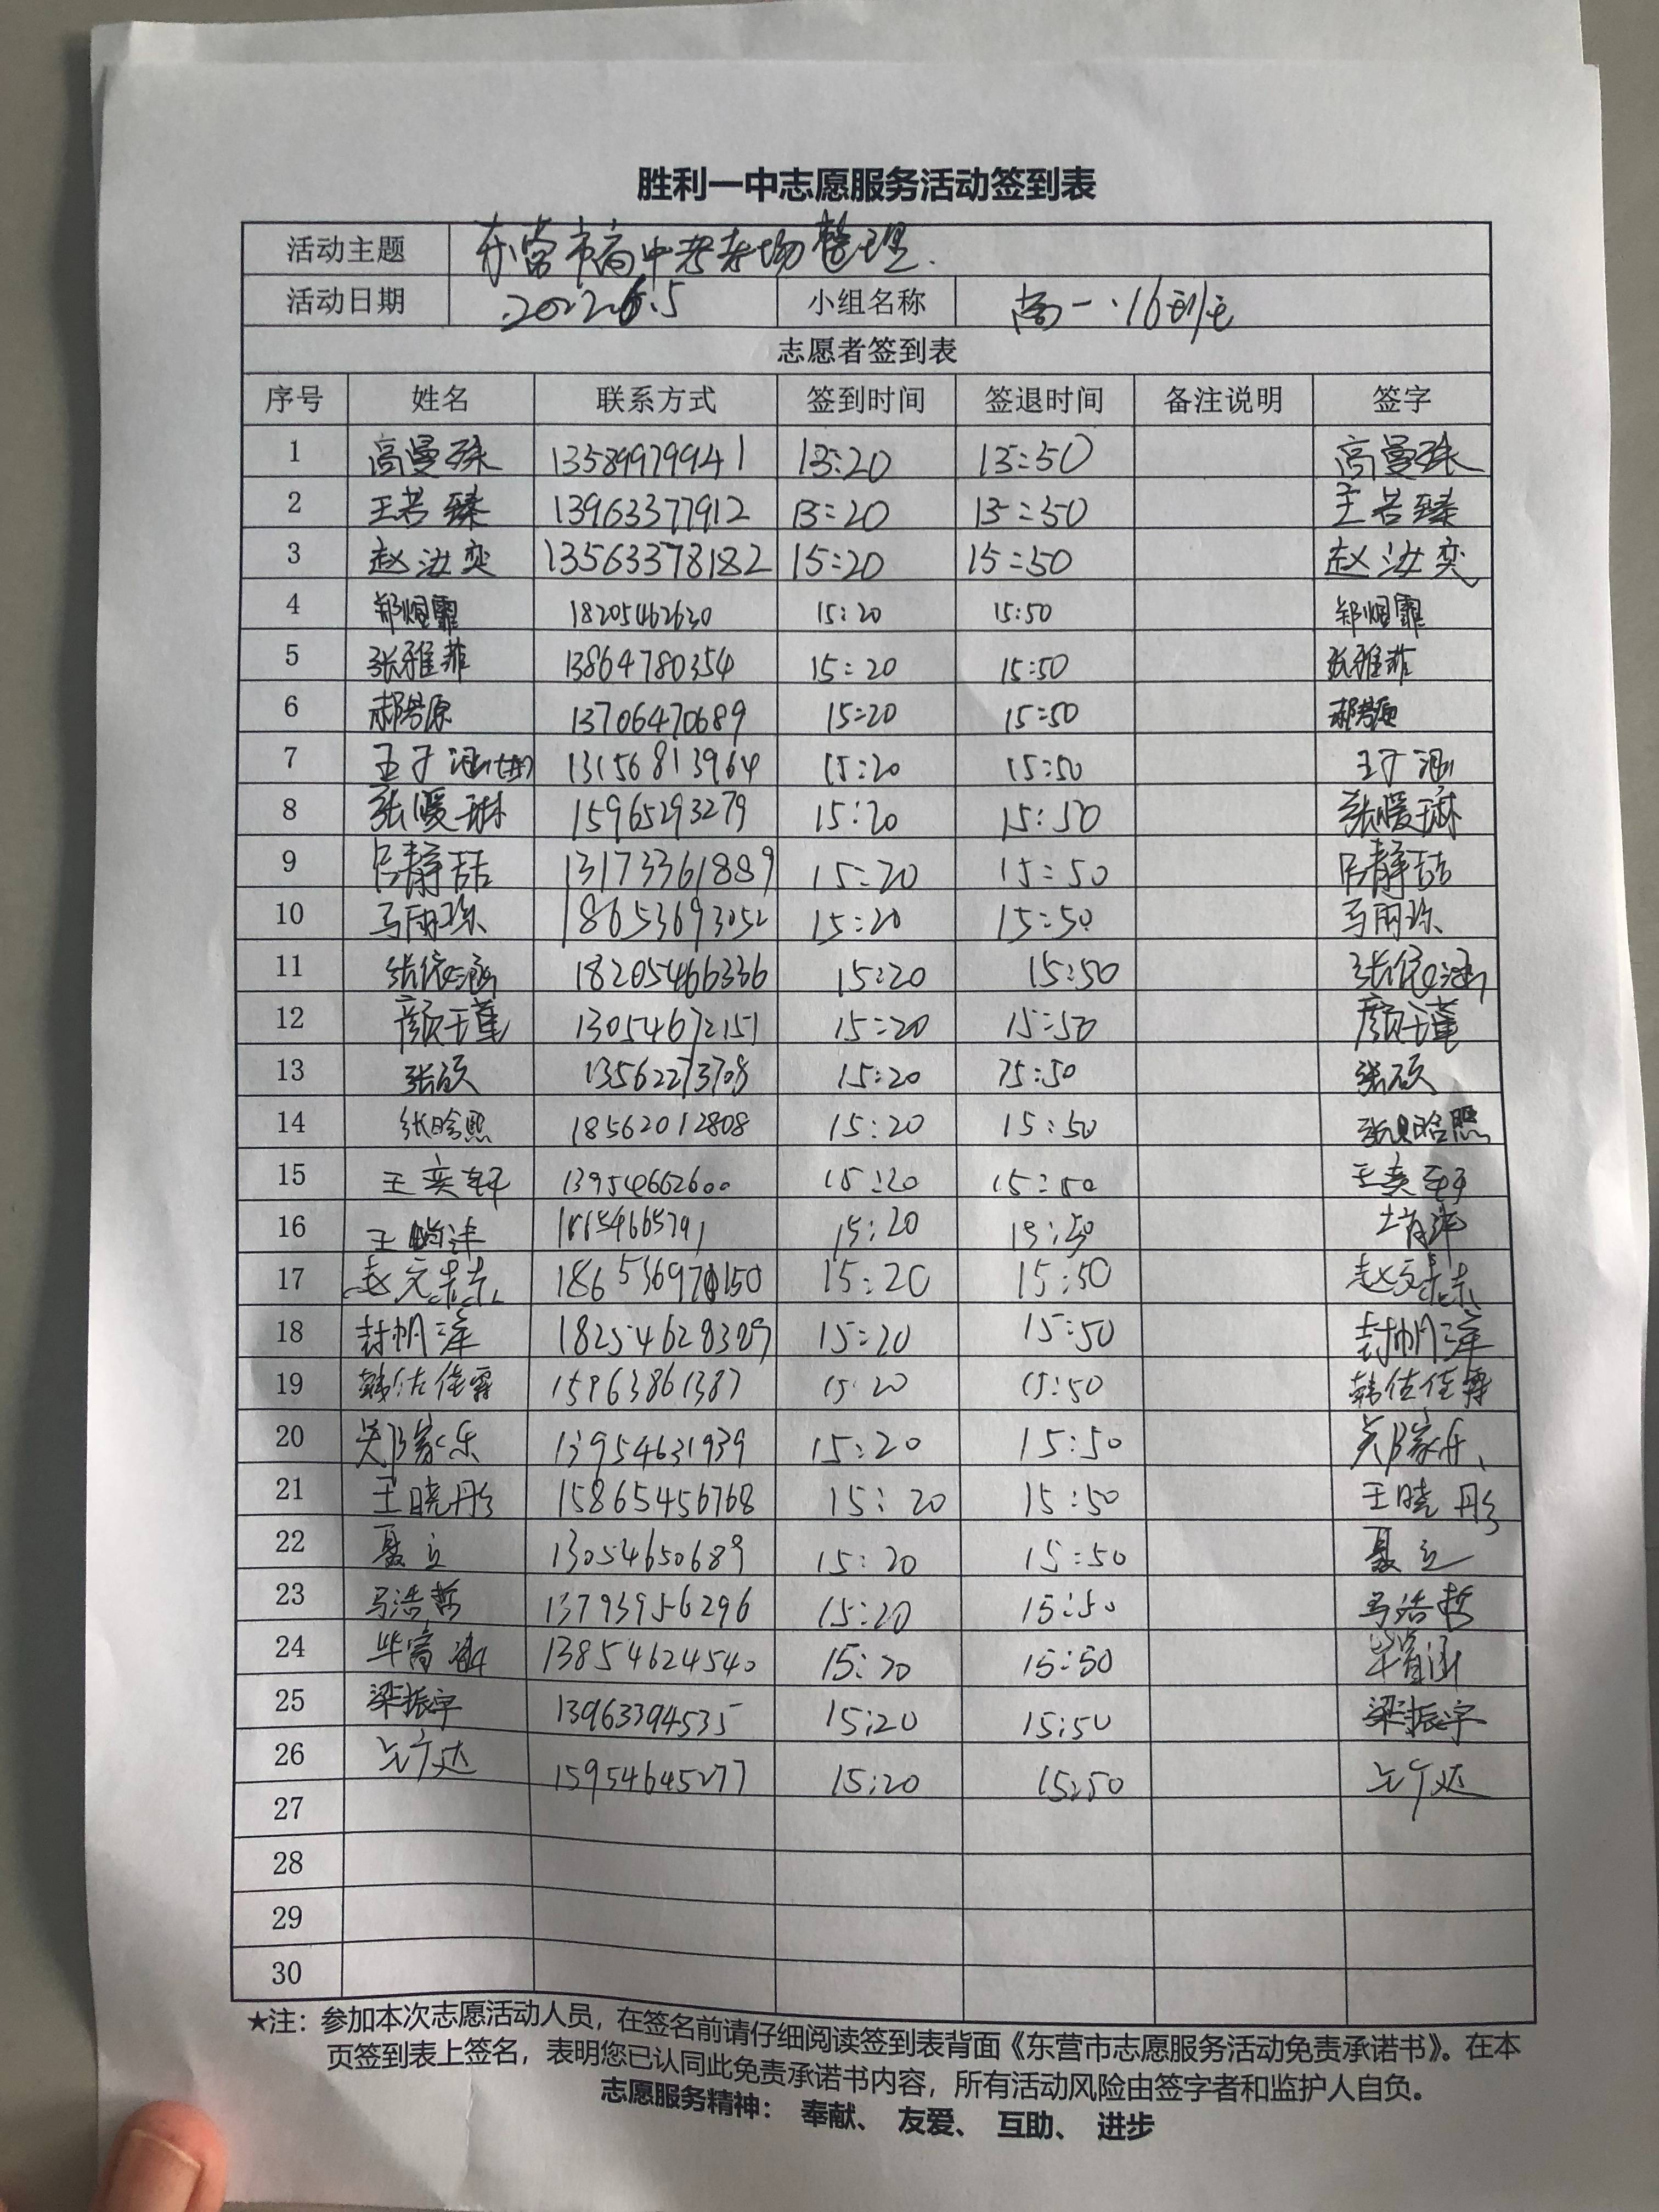 胜利一中志愿服务活动签到表
活动主题 东营市高中考考场整理.
活动日期 2022.6.5 小组名称 高一.16班
志愿者签到表
序号 姓名 联系方式 签到时间 签退时间 备注说明 签字
1 高曼珠 13589979941 15:20 15:50 高曼珠
2 王若臻 13963377912 15:20 15:50 王若臻
3 赵汝奕 13563378182 15:20 15:50 赵汝奕
4 郑煜霏 18205462630 15:20 15:50 郑煜霏
5 张雅菲 13864780354 15:20 15:50 张雅菲
6 郝芳源 13706470689 15:20 15:50 郝芳源
7 王子涵 13156813964 15:20 15:50 王子涵
8 张嫒琳 15965293279 15:20 15:50 张嫒琳
9 吕静喆 13173361889 15:20 15:50 吕静喆
10 马雨珍 18653693052 15:20 15:50 马雨珍
11 张依涵 18205466336 15:20 15:50 张依涵
12 颜玉瑾 13054672151 15:20 15:50 颜玉瑾
13 张硕 13562273708 15:20 15:50 张硕
14 张晗熙 18562012808 15:20 15:50 张晗熙
15 王奕轩 13954662600 15:20 15:50 王奕轩
16 王 15:20 15:50
17 赵文 15:20 15:50 赵文
18 封帆泽 18254628309 15:20 15:50 封帆泽
19 韩佐佳霖 15963861387 15:20 15:50 韩佐佳霖
20 家乐 13954631939 15:20 15:50 家乐
21 王晓彤 15865456768 15:20 15:50 王晓彤
22 聂立 13054650689 15:20 15:50 聂立
23 马浩哲 13793956296 15:20 15:50 马浩哲
24 毕 13854624540 15:20 15:50 毕
25 梁振宇 13963394535 15:20 15:50 梁振宇
26 15954645277 15:20 15:50
27
28
29
30
★注：参加本次志愿活动人员，在签名前请仔细阅读签到表背面《东营市志愿服务活动免责承诺书》。在本
页签到表上签名，表明您已认同此免责承诺书内容，所有活动风险由签字者和监护人自负。
志愿服务精神： 奉献、 友爱、 互助、 进步